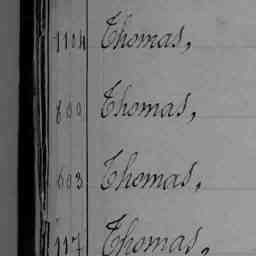 1104 Thomas,
800 Thomas,
603 Thomas,
117 Thomas,